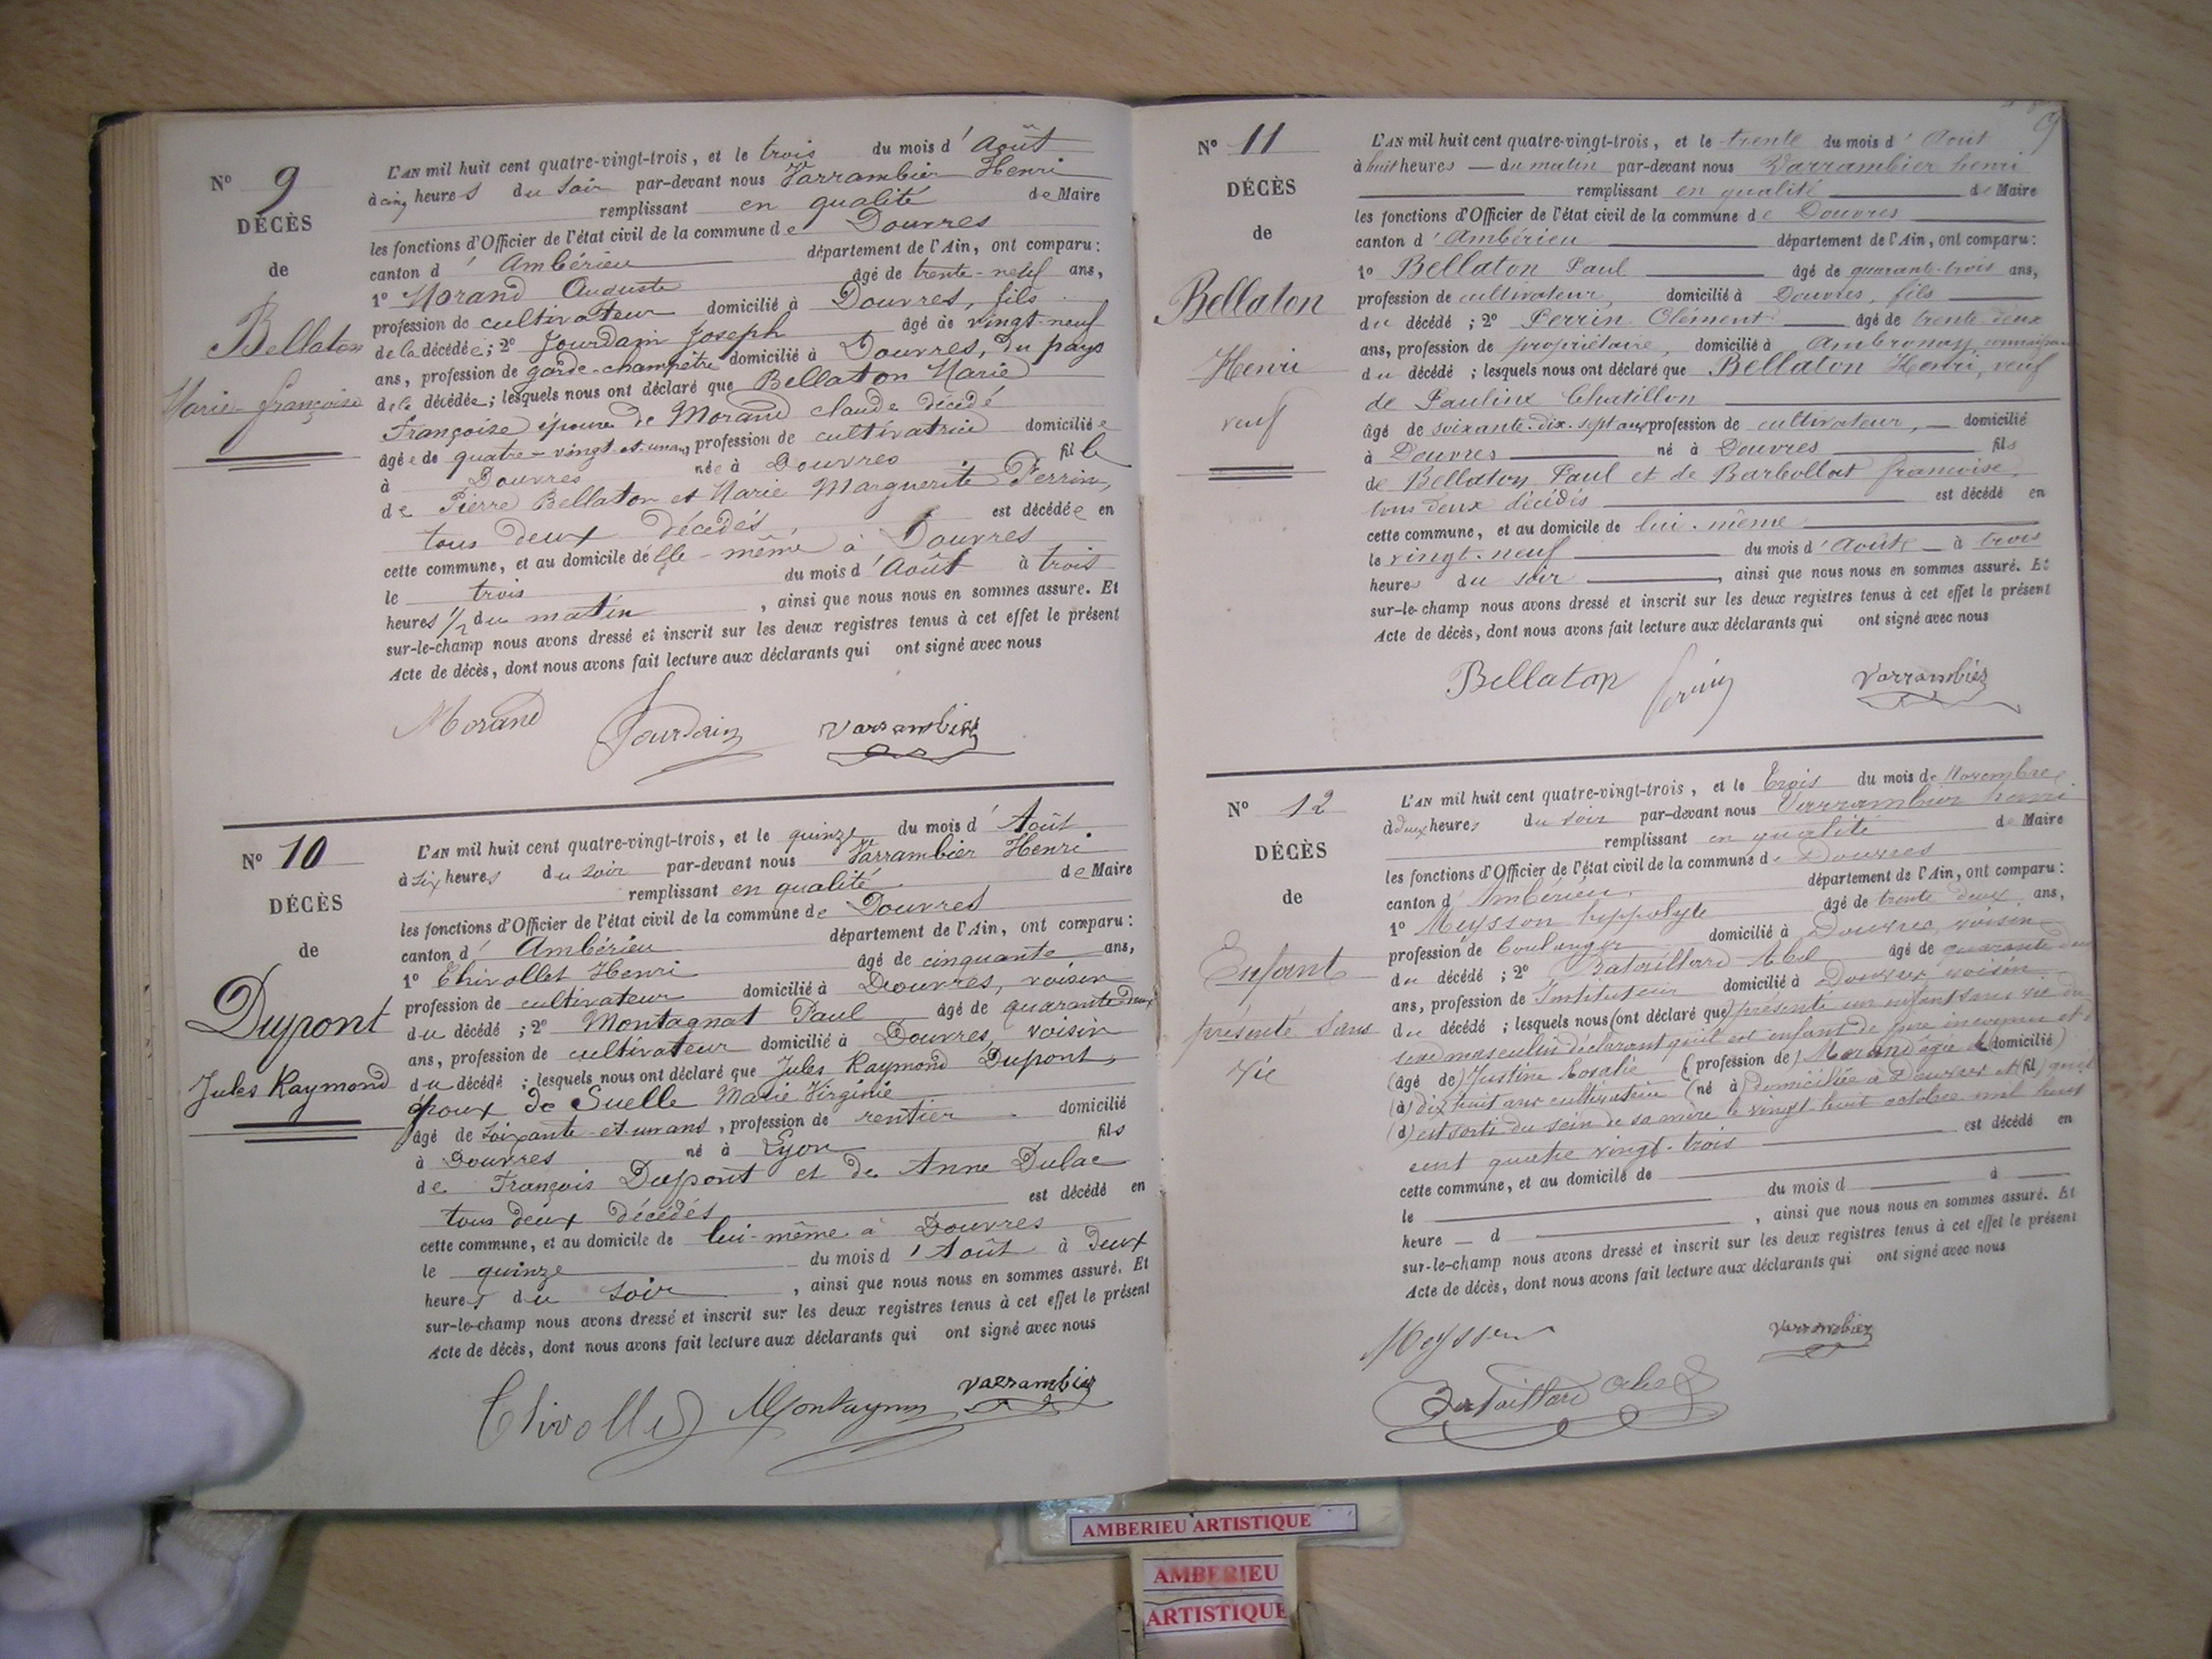 N° 9
DÉCÈS
de
Bellaton
Marie françoise
L'AN mil huit cent quatre-vingt-trois, et le trois du mois d'Août
à cinq heures du Soir par-devant nous Varrambier Henri
remplissant en qualité de Maire
les fonctions d'Officier de l'état civil de la commune de Douvres
canton d'Ambérieu département de l'Ain, ont comparu:
1° Morand Auguste âgé de trente-neuf ans,
profession de cultivateur domicilié à Douvres, fils
de la décédée; 2° Jourdain Joseph âgé de vingt-neuf
ans, profession de garde-champêtre domicilié à Douvres, du pays
de la décédée; lesquels nous ont déclaré que Bellaton Marie
Françoise épouse de Morand claude décédé
âgée de quatre-vingt et un ans, profession de cultivatrice domiciliée
à Douvres née à Douvres fille
de Pierre Bellaton et Marie Marguerite Perrin,
tous deux décédés, est décédée en
cette commune, et au domicile de Elle-même à Douvres
le trois du mois d'Août à trois
heures 1/2 du matin, ainsi que nous nous en sommes assuré. Et
sur-le-champ nous avons dressé et inscrit sur les deux registres tenus à cet effet le présent
Acte de décès, dont nous avons fait lecture aux déclarants qui ont signé avec nous
Morand Jourdain Varrambier
N° 10
DÉCÈS
de
Dupont
Jules Raymond
L'AN mil huit cent quatre-vingt-trois, et le quinze du mois d'Août
à six heures du soir par-devant nous Varrambier Henri
remplissant en qualité de Maire
les fonctions d'Officier de l'état civil de la commune de Douvres
canton d'Ambérieu département de l'Ain, ont comparu:
1° Thivollet Henri âgé de cinquante ans,
profession de cultivateur domicilié à Douvres, voisin
du décédé; 2° Montagnat Paul âgé de quarante-deux
ans, profession de cultivateur domicilié à Douvres, voisin
du décédé; lesquels nous ont déclaré que Jules Raymond Dupont,
époux de Suelle Marie Virginie
âgé de soixante-et-un ans, profession de rentier domicilié
à Douvres né à Lyon fils
de François Dupont et de Anne Dulac
tous deux décédés est décédé en
cette commune, et au domicile de lui-même à Douvres
le quinze du mois d'Août à deux
heures du soir, ainsi que nous nous en sommes assuré. Et
sur-le-champ nous avons dressé et inscrit sur les deux registres tenus à cet effet le présent
Acte de décès, dont nous avons fait lecture aux déclarants qui ont signé avec nous
Thivollet Montagnat Varrambier
9
N° 11
DÉCÈS
de
Bellaton
Henri
veuf
L'AN mil huit cent quatre-vingt-trois, et le trente du mois d'Août
à huit heures du matin par-devant nous Varrambier henri
remplissant en qualité de Maire
les fonctions d'Officier de l'état civil de la commune de Douvres
canton d'Ambérieu département de l'Ain, ont comparu:
1° Bellaton Paul âgé de quarante-trois ans,
profession de cultivateur, domicilié à Douvres, fils
du décédé; 2° Perrin Clément âgé de trente-deux
ans, profession de propriétaire, domicilié à Ambronay,
du décédé; lesquels nous ont déclaré que Bellaton Henri, veuf
de Pauline Chatillon
âgé de soixante-dix-sept ans profession de cultivateur, domicilié
à Douvres né à Douvres fils
de Bellaton Paul et de Barbollat francoise,
tous deux décédés est décédé en
cette commune, et au domicile de lui-même
le vingt-neuf du mois d'Août à trois
heures du soir, ainsi que nous nous en sommes assuré. Et
sur-le-champ nous avons dressé et inscrit sur les deux registres tenus à cet effet le présent
Acte de décès, dont nous avons fait lecture aux déclarants qui ont signé avec nous
Bellaton Perrin Varrambier
N° 12
DÉCÈS
de
Enfant
présenté sans
vie
L'AN mil huit cent quatre-vingt-trois, et le trois du mois de Novembre
à deux heures du soir par-devant nous Varrambier henri
remplissant en qualité de Maire
les fonctions d'Officier de l'état civil de la commune de Douvres
canton d'Ambérieu. département de l'Ain, ont comparu:
1° Meysson hyppolyte âgé de trente deux ans,
profession de boulanger domicilié à Douvres, voisin
du décédé; 2° Bataillard Abel âgé de quarante deux
ans, profession de Instituteur domicilié à Douvres voisin
du décédé; lesquels nous (ont déclaré que) présenté un enfant sans vie du
sexe masculin déclarant qu'il est enfant de père inconnu et
(âgé de) Justine Rosalie (profession de) Morand âgée de (domicilié)
(à) dix huit ans cultivatrice (né à) domiciliée à Douvres et (fil) qu'il
(d) est sorti du sein de sa mère le vingt-huit octobre mil huit
cent quatre vingt-trois est décédé en
cette commune, et au domicile de
le du mois d à
heure d, ainsi que nous nous en sommes assuré. Et
sur-le-champ nous avons dressé et inscrit sur les deux registres tenus à cet effet le présent
Acte de décès, dont nous avons fait lecture aux déclarants qui ont signé avec nous
Meysson Varrambier
Bataillard abel
AMBERIEU ARTISTIQUE
AMBERIEU
ARTISTIQUE